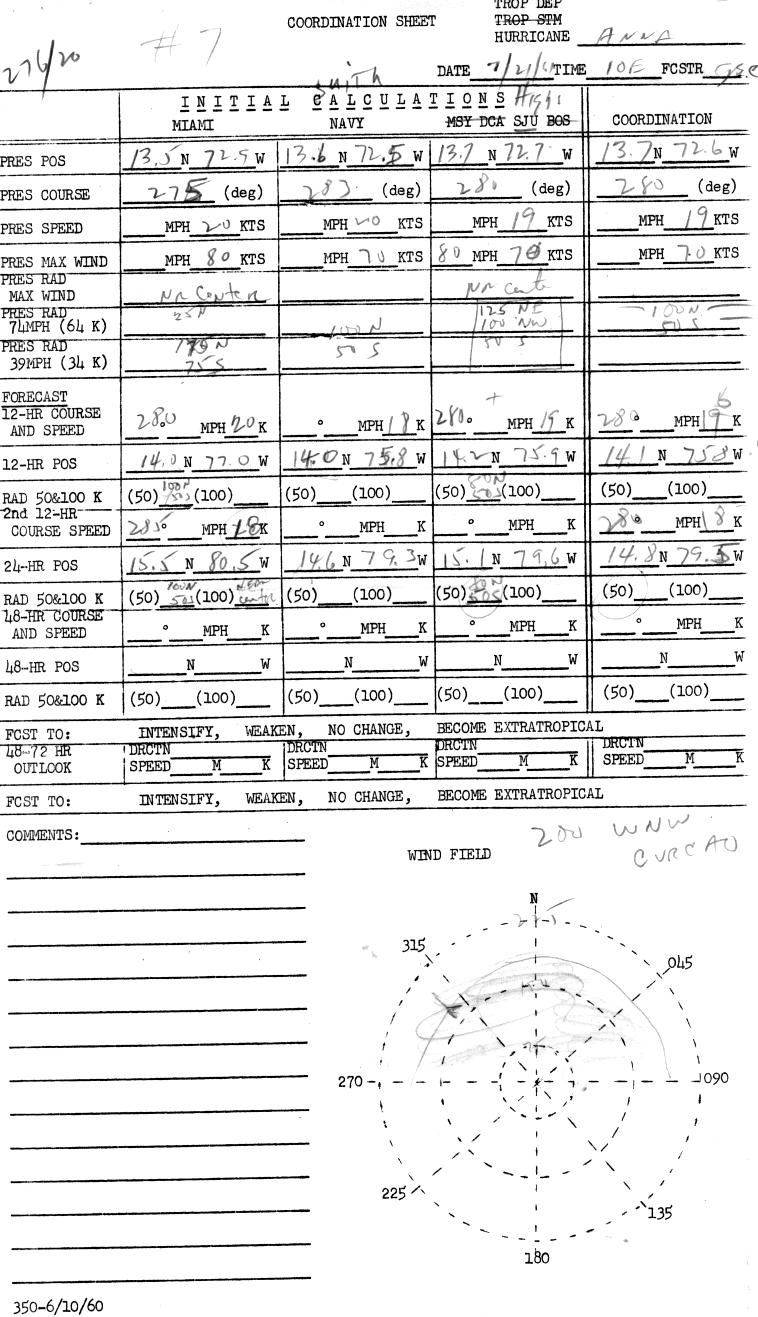 TROP DEP
COORDINATION SHEET TROP STM
# 7 HURRICANE ANNA
276/20
DATE 7/21/61 TIME 10E FCSTR
Smith
INITIAL CALCULATIONS High
MIAMI NAVY MSY DCA SJU BOS COORDINATION
PRES POS 13.5 N 72.9 W 13.6 N 72.5 W 13.7 N 72.7 W 13.7 N 72.6 W
PRES COURSE 275 (deg) 283 (deg) 280 (deg) 280 (deg)
PRES SPEED MPH 20 KTS MPH 20 KTS MPH 19 KTS MPH 19 KTS
PRES MAX WIND MPH 80 KTS MPH 70 KTS 80 MPH 70 KTS MPH 70 KTS
PRES RAD
MAX WIND NR Center NR Cent
PRES RAD 25N 125 NE 100 N
74MPH (64 K) 100 N 100 NW 50 S
PRES RAD 175 N 50 S 50 S
39MPH (34 K) 75 S
FORECAST
12-HR COURSE
AND SPEED 280° MPH 20 K ° MPH 18 K 280° MPH 19 K 280° MPH 19 K
12-HR POS 14.0 N 77.0 W 14.0 N 75.8 W 14.2 N 75.9 W 14.1 N 75.8 W
RAD 50&100 K (50) 100N 50S (100) (50) (100) (50) 80N 50S (100) (50) (100)
2nd 12-HR
COURSE SPEED 285° MPH 18 K ° MPH K ° MPH K 280° MPH 18 K
24-HR POS 15.5 N 80.5 W 14.6 N 79.3 W 15.1 N 79.6 W 14.8 N 79.5 W
RAD 50&100 K (50) 100N 50S (100) near center (50) (100) (50) 80N 50S (100) (50) (100)
48-HR COURSE
AND SPEED ° MPH K ° MPH K ° MPH K ° MPH K
48-HR POS N W N W N W N W
RAD 50&100 K (50) (100) (50) (100) (50) (100) (50) (100)
FCST TO: INTENSIFY, WEAKEN, NO CHANGE, BECOME EXTRATROPICAL
48-72 HR DRCTN DRCTN DRCTN DRCTN
OUTLOOK SPEED M K SPEED M K SPEED M K SPEED M K
FCST TO: INTENSIFY, WEAKEN, NO CHANGE, BECOME EXTRATROPICAL
COMMENTS:
200 WNW
WIND FIELD CURCAO
N
225
315
045
150
75
270
090
225
135
180
350-6/10/60